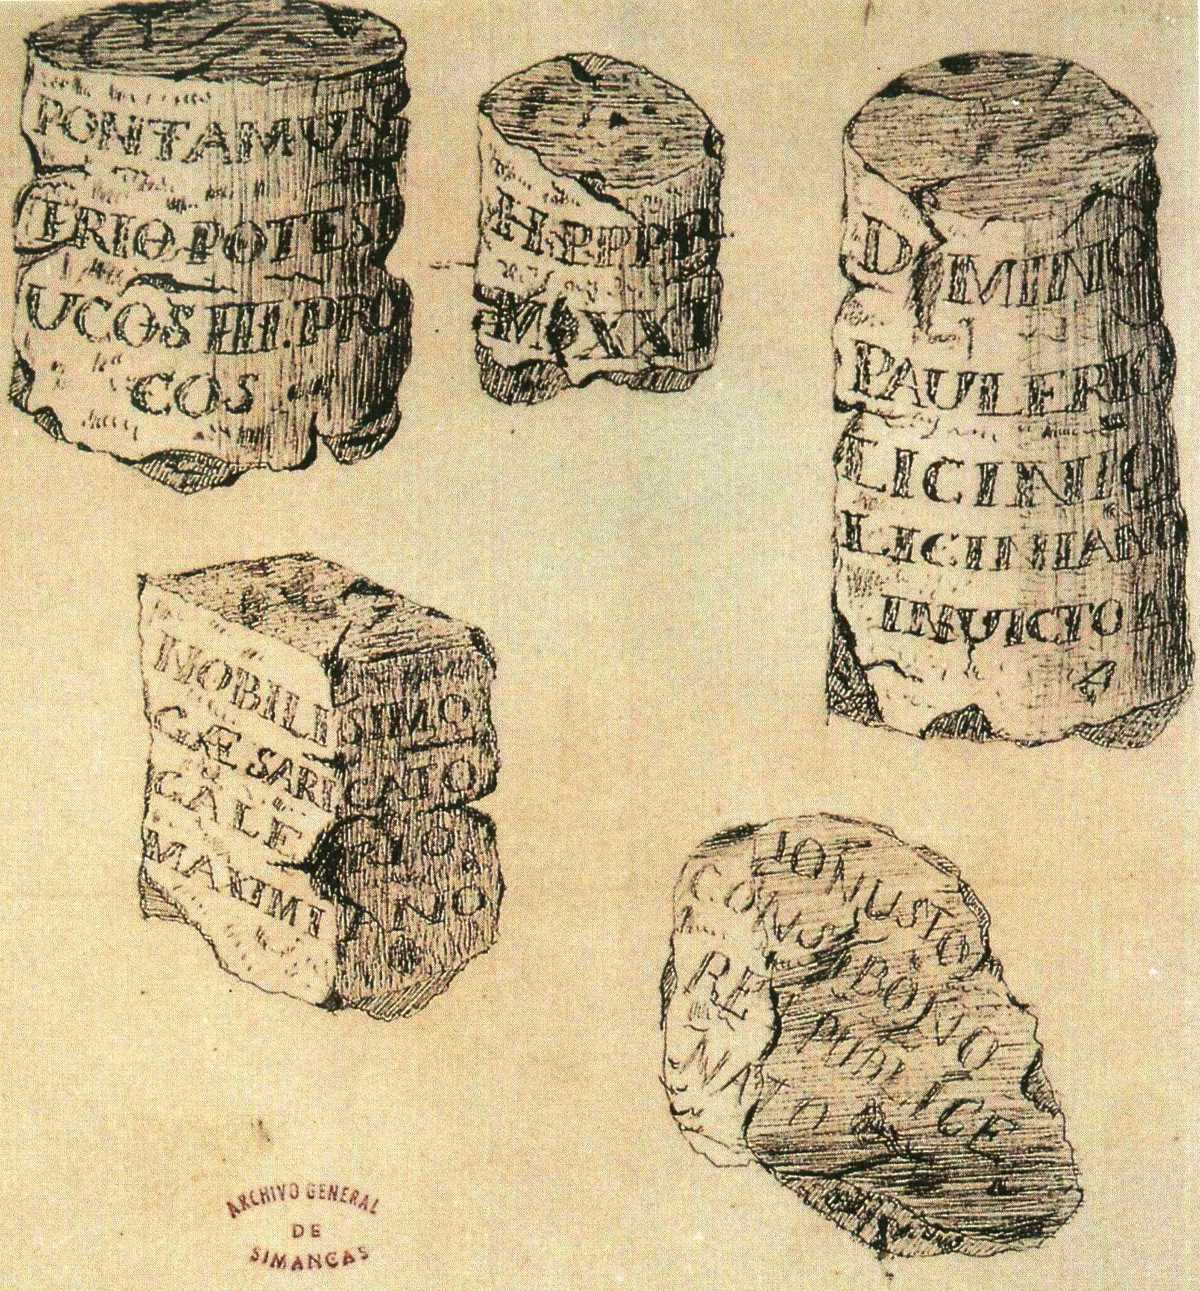 PONTAMUN
TRIO.POTES
UCOS IIII.PRO
COS
H.PPP
M.XXI
DOMINO
PAULERIO
LICINIO
LICINIANO
INVICTO A
A
NOBILISIMO
CÆSARI CATO
GALERIO
MAXIMIANO
IONUSTO
CONS BONO
REI PUBLICE
NATO
ARCHIVO GENERAL
DE
SIMANCAS